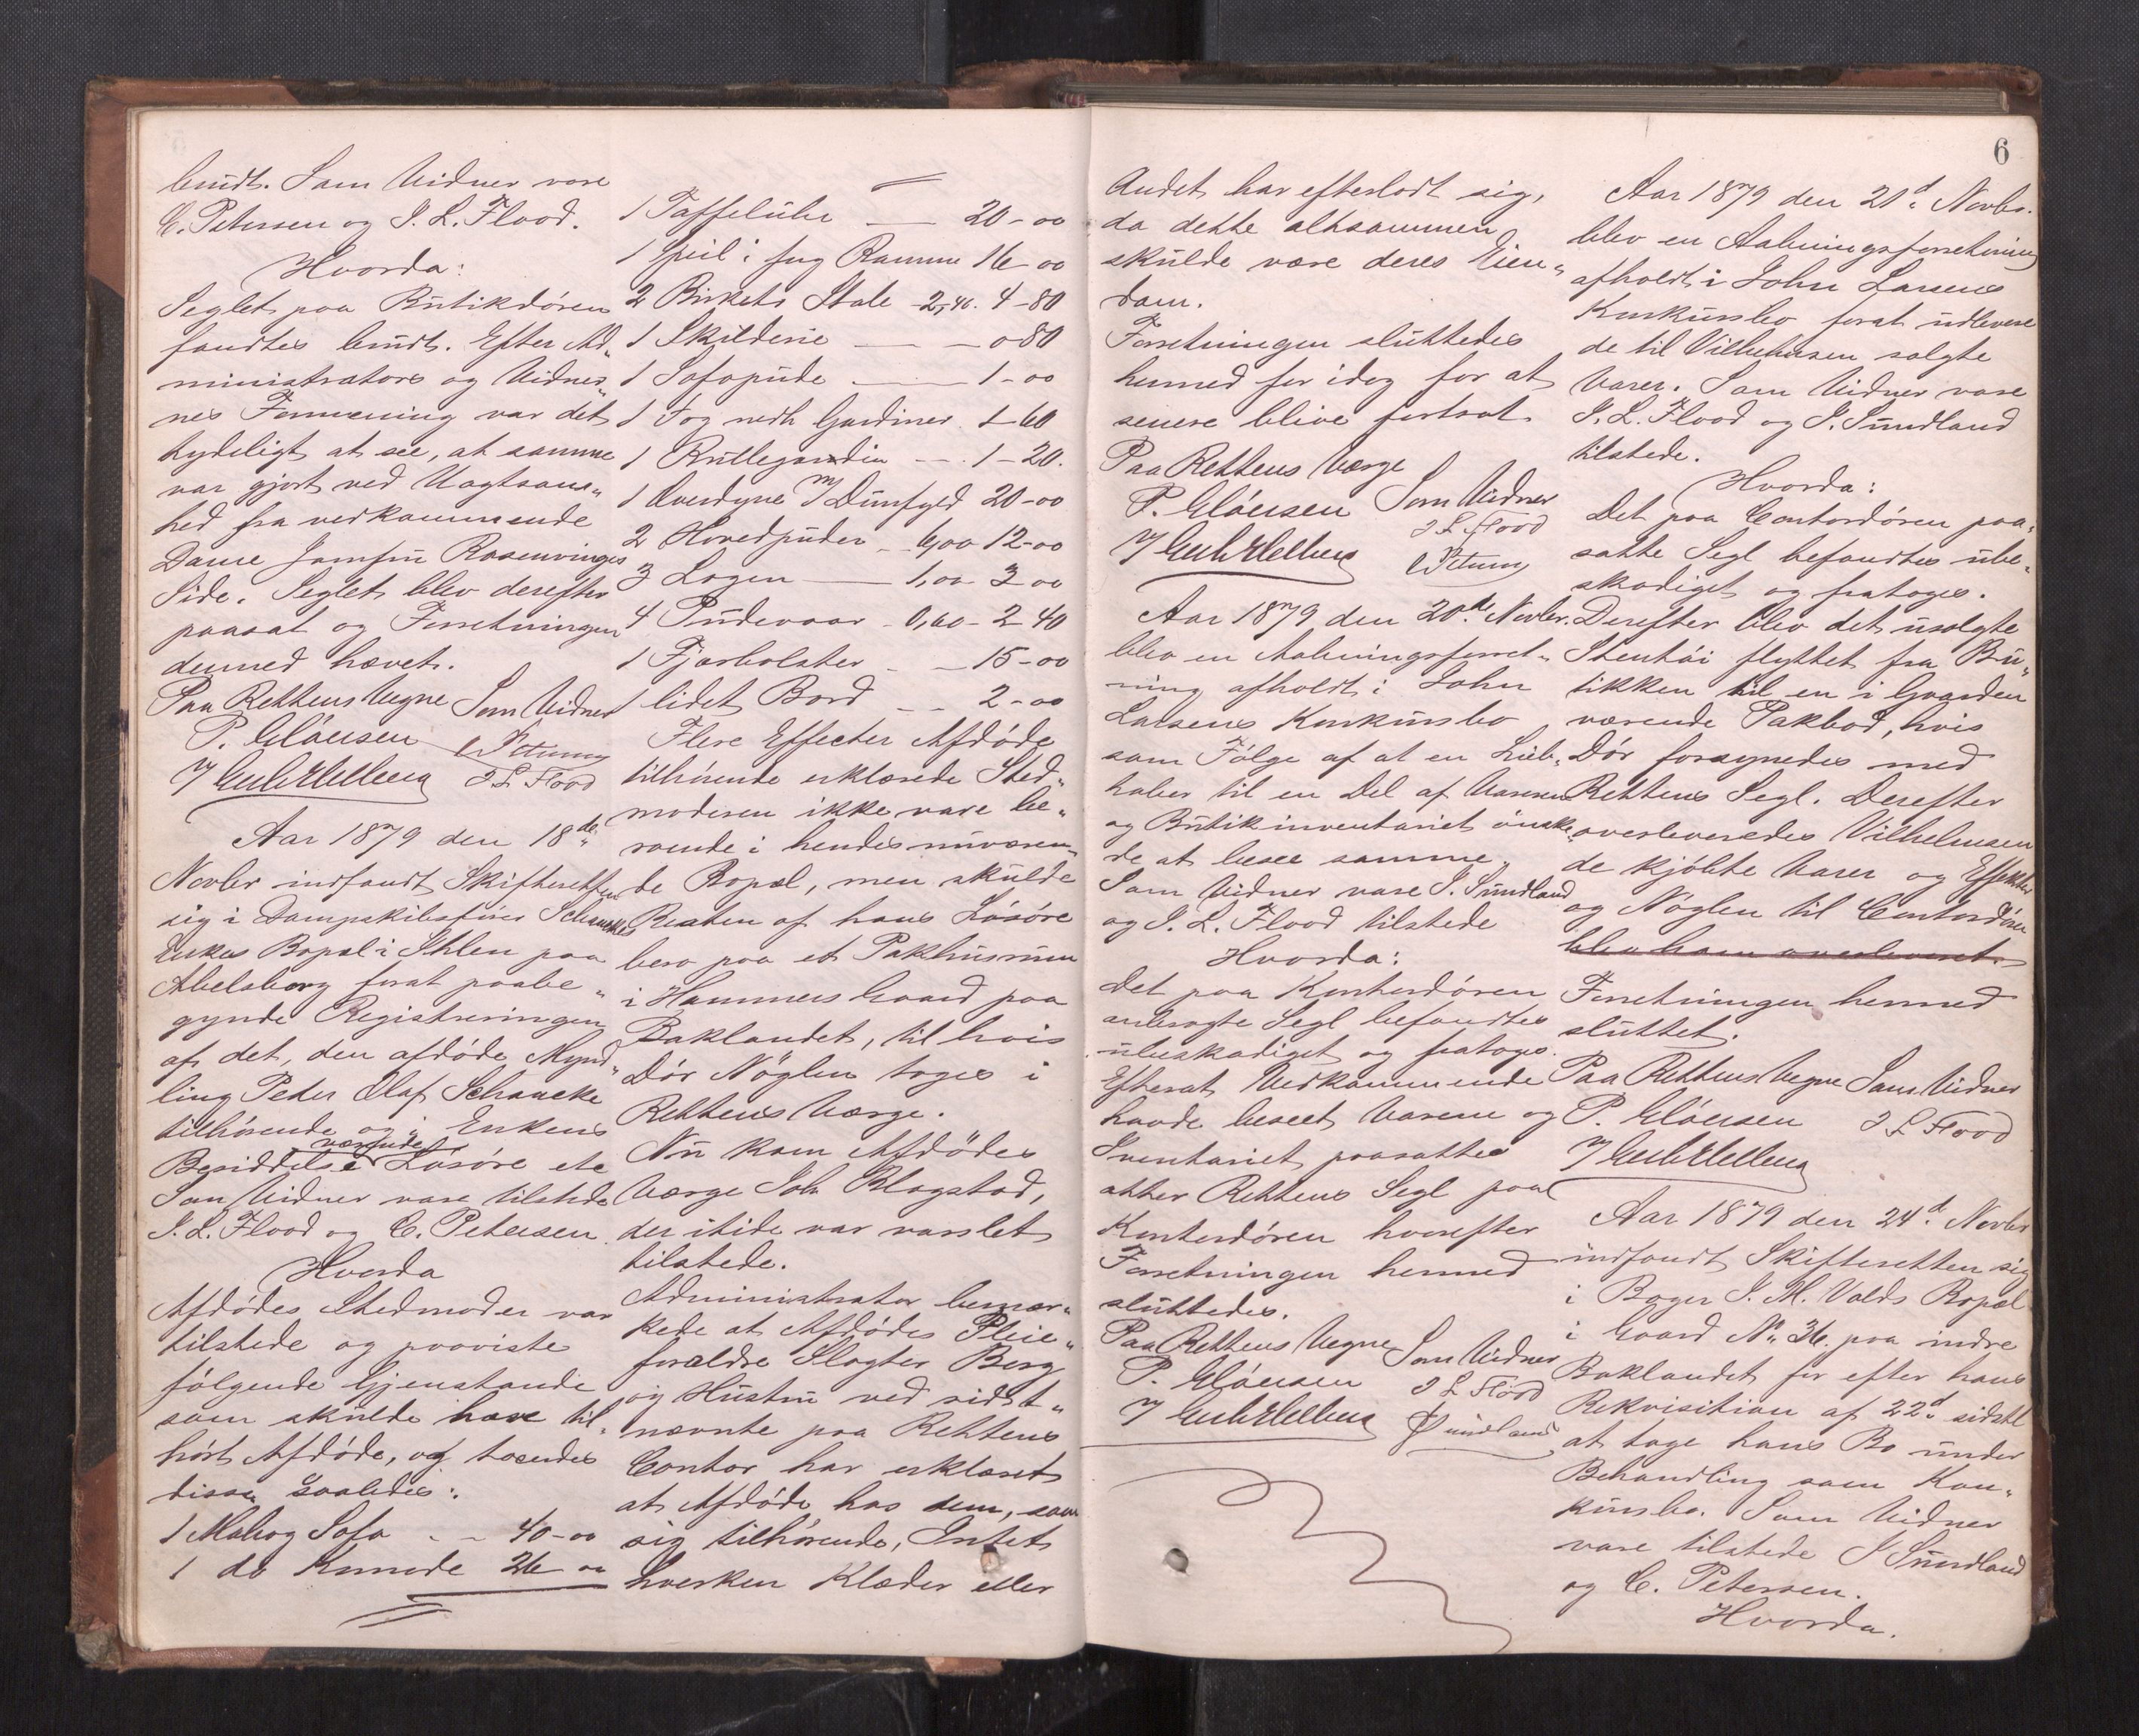 brudt. Som Vidner vare
C. Petersen og I. L. Flood.
Hvorda:
Seglet paa Butikdören
fandtes brudt. Efter Ad„
ministrators og Vidner„
nes Formening var det
tydeligt at see, at samme
var gjort ved Uagtsom„
hed fra vedkommende
Damer Jomfru Rosenvinges
Side. Seglet blev derefter
paasat og Forretningen
dermed hævet.
Paa Rettens Vegne Som Vidner
P. Clöusen
I L Flood
Aar 1879 den 18de
Novbr indfandt Skifteretten
sig i Dampskibsförer Schanckes
Enkes Bopæl i Ihlen paa
Abelsborg forat paabe„
gynde Registreringen
af det, den afdöde Mynd„
ling Peder Olaf Schancke
tilhörende og i Enkens
Besiddelse værende Lösöre etc
Som Vidner vare tilstede
I. L. Flood og C. Petersen.
Hvorda
Afdödes Stedmoder var
tilstede og paaviste
fölgende Gjenstande
som skulde have til„
hört Afdöde, og toges
disse saaledes:
1 Mahog Sofa - - 40-00
1 do Komode 26 00
1 Taffeluhr — 20-00
1 Speil i fug Ramme 16 00
2 Birkets Stole -2,40. 4-80
1 Skilderie — -080
1 Sofapude — 1-00
1 Fog nedh Gardiner. 1-60
1 Rullegardin — 1-20.
1 Overdyne m/ Dunfyld 20-00
2 Hovedpuder - 6,00 12-00
3 Lagen — 1,00 3 00
4 Pudevaar - 0,60 - 2 40
1 Fjærbolster - - 15-00
1 lidet Bord - - 2-00
Flere Effecter Afdöde
tilhörende erklærede Sted„
moderen ikke vare be„
roende i hendes nuværen„
de Bopæl, men skulde
Resten af hans Lösöre
bero paa et Pakhusrum
i Hammers Gaard paa
Baklandet, til hvis
Dör Nöglen toges i
Rettens Værge.
Nu kom Afdödes
Værge Joh Blogstad,
der itide var varslet
tilstede.
Administrator bemær„
kede at Afdödes Pleie„
forældre Slagter Berg
og Hustru ved sidst„
nævnte paa Rettens
Contor har erklæret
at Afdöde hos dem, som
sig tilhörende, Intet
hverken Klæder eller
6
Andet har efterladt sig,
da dette altsammen
skulde være deres Eien„
dom.
Forretningen sluttedes
hermed for idag for at
senere blive fortsat
Paa Rettens Vegne
P. Clöusen Som Vidner
I L Flood
Aar 1879 den 20de Novbr.
blev en Aabningsforret„
ning afholdt i John
Larsens Konkursbo
som Fölge af at en Lieb„
haber til en Del af Varerne
og Butikinventariet önske„
de at besee samme.
Som Vidner vare I. Sundland
og I. L. Flood tilstede
Hvorda:
Det paa Kontordören
anbragte Segl befandtes
ubeskadiget og fratoges.
Efterat Vedkommende
havde beseet Varerne og
Inventariet paasattes
atter Rettens Segl paa
Kontordören hvorefter
Forretningen hermed
sluttedes.
Paa Rettens Vegne
P. Clöusen Som Vidner
I L Flood
I Sundland
Aar 1879 den 21d Novbr.
blev en Aabningsforretning
afholdt i John Larsens
Konkursbo forat udlevere
de til Vilhelmsen solgte
Varer. Som Vidner vare
I. L. Flood og I. Sundland
tilstede.
Hvorda:
Det paa Contordören paa„
satte Segl befandtes ube„
skadiget og fratoges.
Derefter blev det usolgte
Stentöi flyttet fra Bu„
tikken til en i Gaarden
værende Pakbod, hvis
Dör forsynedes med
Rettens Segl. Derefter
overleveredes Vilhelmsen
de kjöbte Varer og Effekter
og Nöglen til Contordören
blev ham overleveret
Forretningen hermed
sluttet.
Paa Rettens Vegne Som Vidner
P. Clöusen I L Flood
Aar 1879 den 24d. Novbr
indfandt Skifteretten sig
i Bager I. M. Valds Bopæl
i Gaard No. 36. paa indre
Baklandet for efter hans
Rekvisition af 22d. sidstl
at tage hans Bo under
Behandling som Kon„
kursbo. Som Vidner
vare tilstede I Sundland
og C. Petersen.
Hvorda.